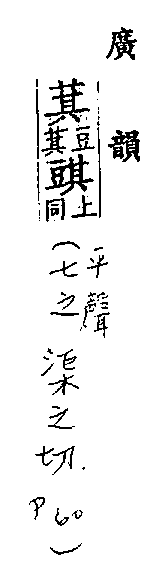 廣韻
萁
豆萁
䫏
上同
(平聲
七之
渠之切.
P60)